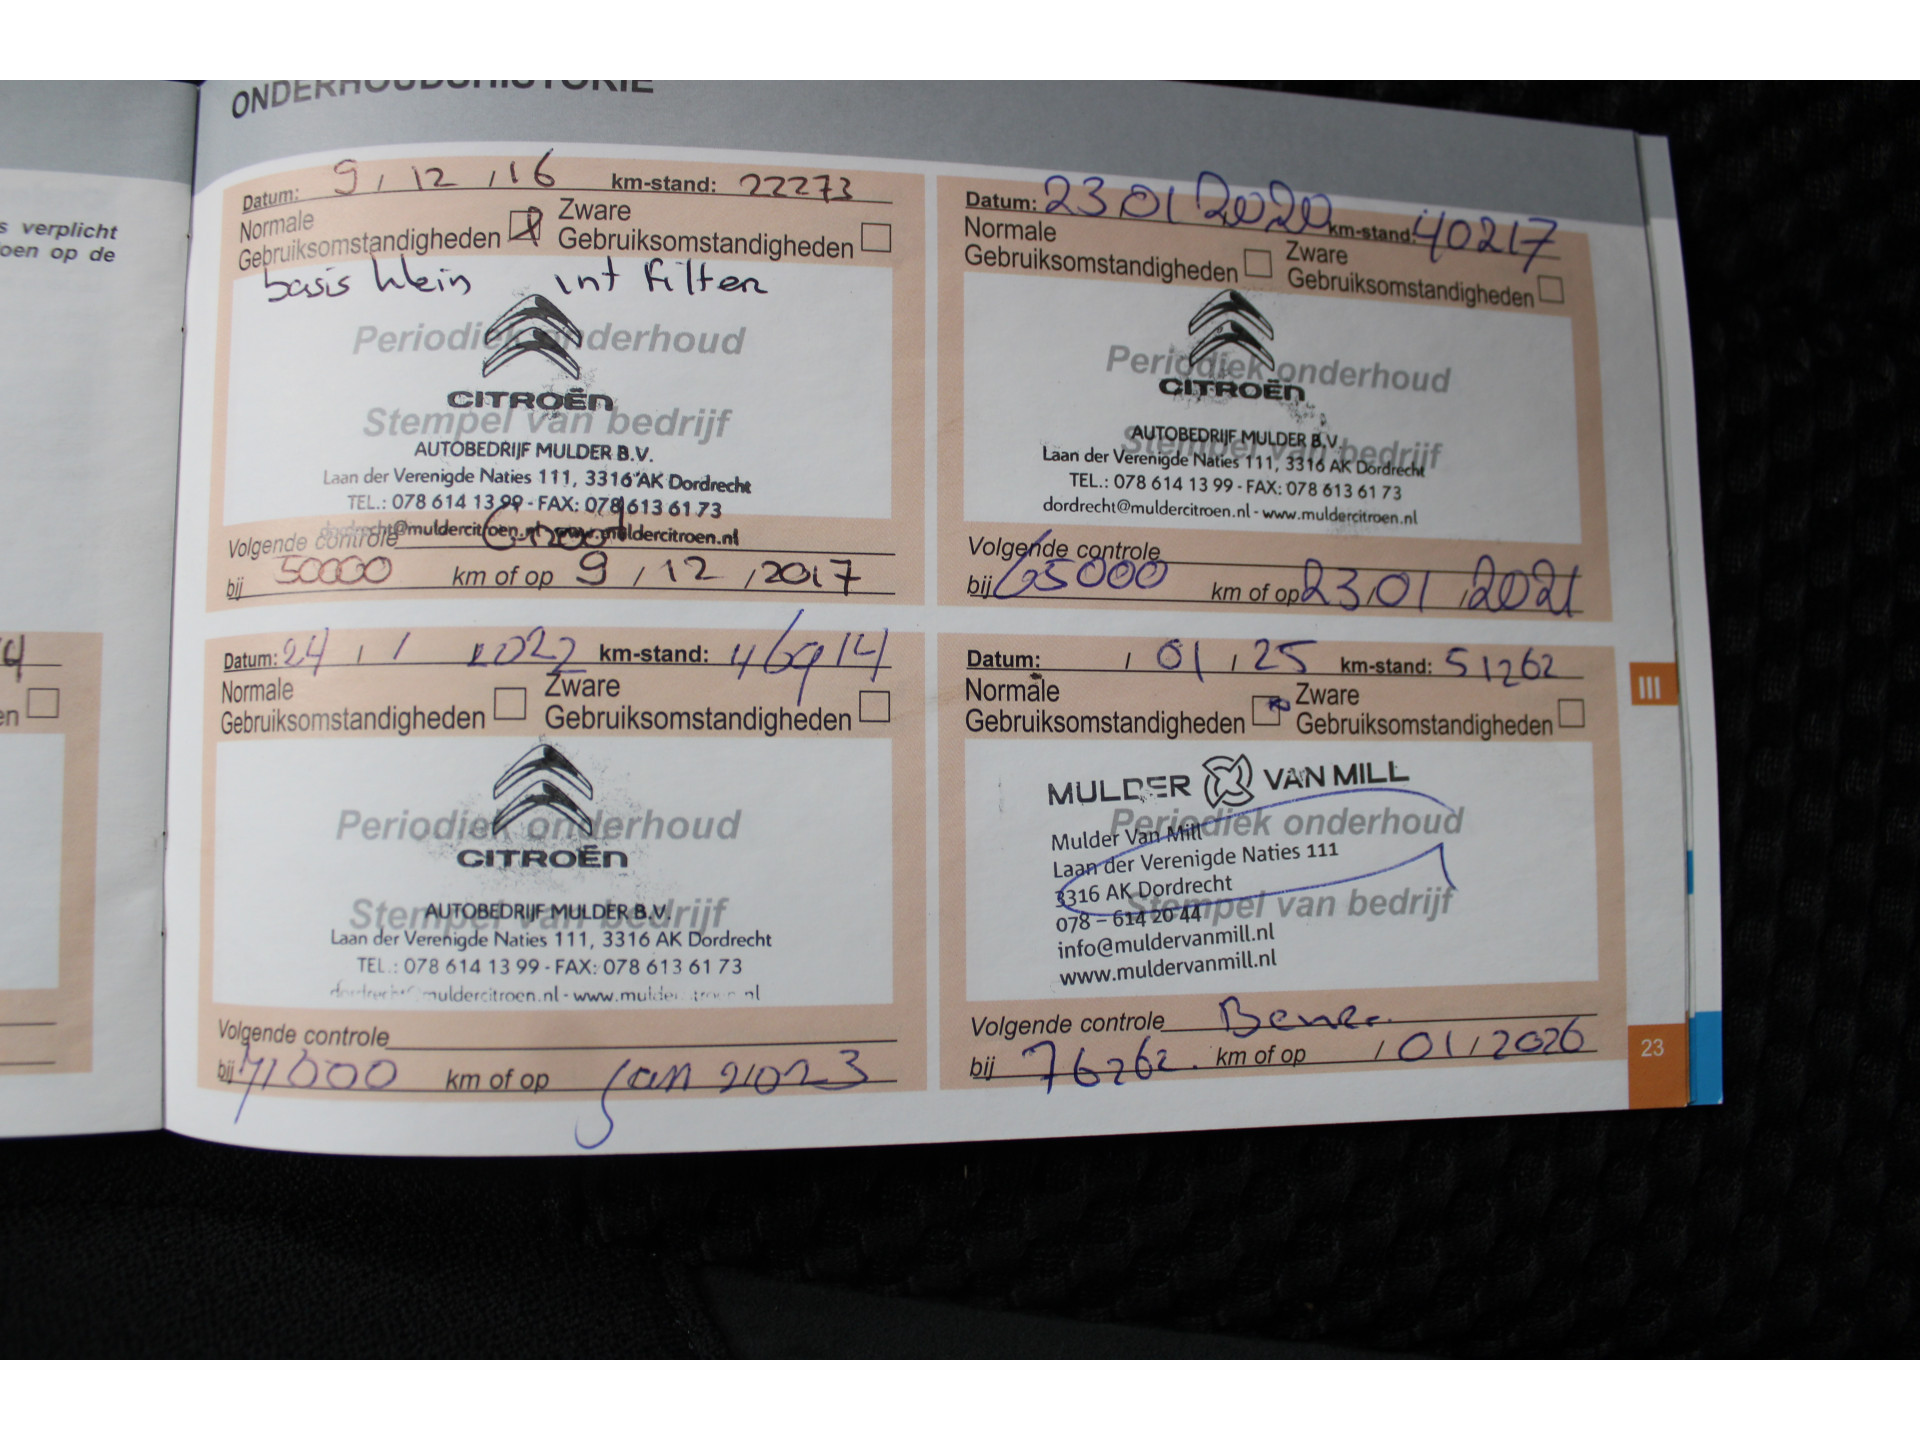 ONDERHOUDSHISTORIE
s verplicht
oen op de
4
en
Datum: 9 / 12 / 16 km-stand: 22273
Normale Gebruiksomstandigheden
Zware Gebruiksomstandigheden
basis klein int filter
Periodiek onderhoud
CITROËN
Stempel van bedrijf
AUTOBEDRIJF MULDER B.V.
Laan der Verenigde Naties 111, 3316 AK Dordrecht
TEL.: 078 614 13 99 - FAX: 078 613 61 73
dordrecht@muldercitroen.nl - www.muldercitroen.nl
Volgende controle
bij 50000 km of op 9 / 12 / 2017
Datum: 23 01 2020 km-stand: 40217
Normale Gebruiksomstandigheden
Zware Gebruiksomstandigheden
Periodiek onderhoud
CITROËN
Stempel van bedrijf
AUTOBEDRIJF MULDER B.V.
Laan der Verenigde Naties 111, 3316 AK Dordrecht
TEL.: 078 614 13 99 - FAX: 078 613 61 73
dordrecht@muldercitroen.nl - www.muldercitroen.nl
Volgende controle
bij 65000 km of op 23 / 01 / 2021
Datum: 24 / 1 2022 km-stand: 46914
Normale Gebruiksomstandigheden
Zware Gebruiksomstandigheden
Periodiek onderhoud
CITROËN
Stempel van bedrijf
AUTOBEDRIJF MULDER B.V.
Laan der Verenigde Naties 111, 3316 AK Dordrecht
TEL.: 078 614 13 99 - FAX: 078 613 61 73
dordrecht@muldercitroen.nl - www.muldercitroen.nl
Volgende controle
bij 71000 km of op Jan 2023
Datum: / 01 / 25 km-stand: 51262
Normale Gebruiksomstandigheden
Zware Gebruiksomstandigheden
MULDER VAN MILL
Periodiek onderhoud
Mulder Van Mill
Laan der Verenigde Naties 111
3316 AK Dordrecht
Stempel van bedrijf
078 – 614 20 44
info@muldervanmill.nl
www.muldervanmill.nl
Volgende controle
bij 76262. km of op / 01 / 2026
III
23